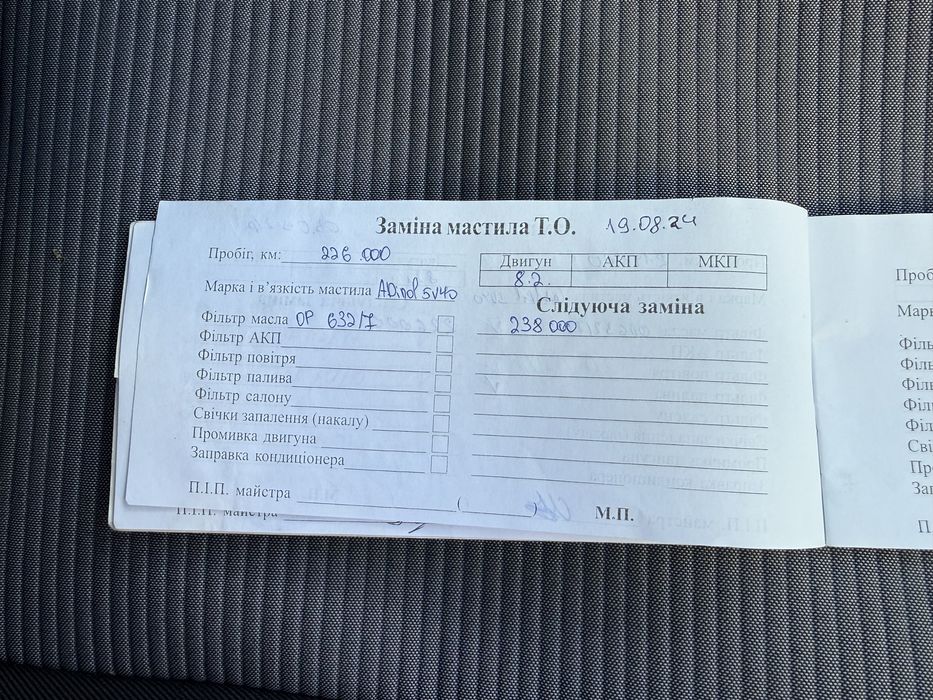 Заміна мастила Т.О. 19.08.24
Пробіг, км: 226 000
Двигун АКП МКП
8.2.
Марка і в’язкість мастила ADinol 5W40
Слідуюча заміна
238 000
Фільтр масла OP 632/7
Фільтр АКП
Фільтр повітря
Фільтр палива
Фільтр салону
Свічки запалення (накалу)
Промивка двигуна
Заправка кондиціонера
П.І.П. майстра ( ) М.П.
П.І.П. майстра
Проб
Марк
Філь
Філь
Філь
Філь
Філ
Сві
Пр
Зап
П.